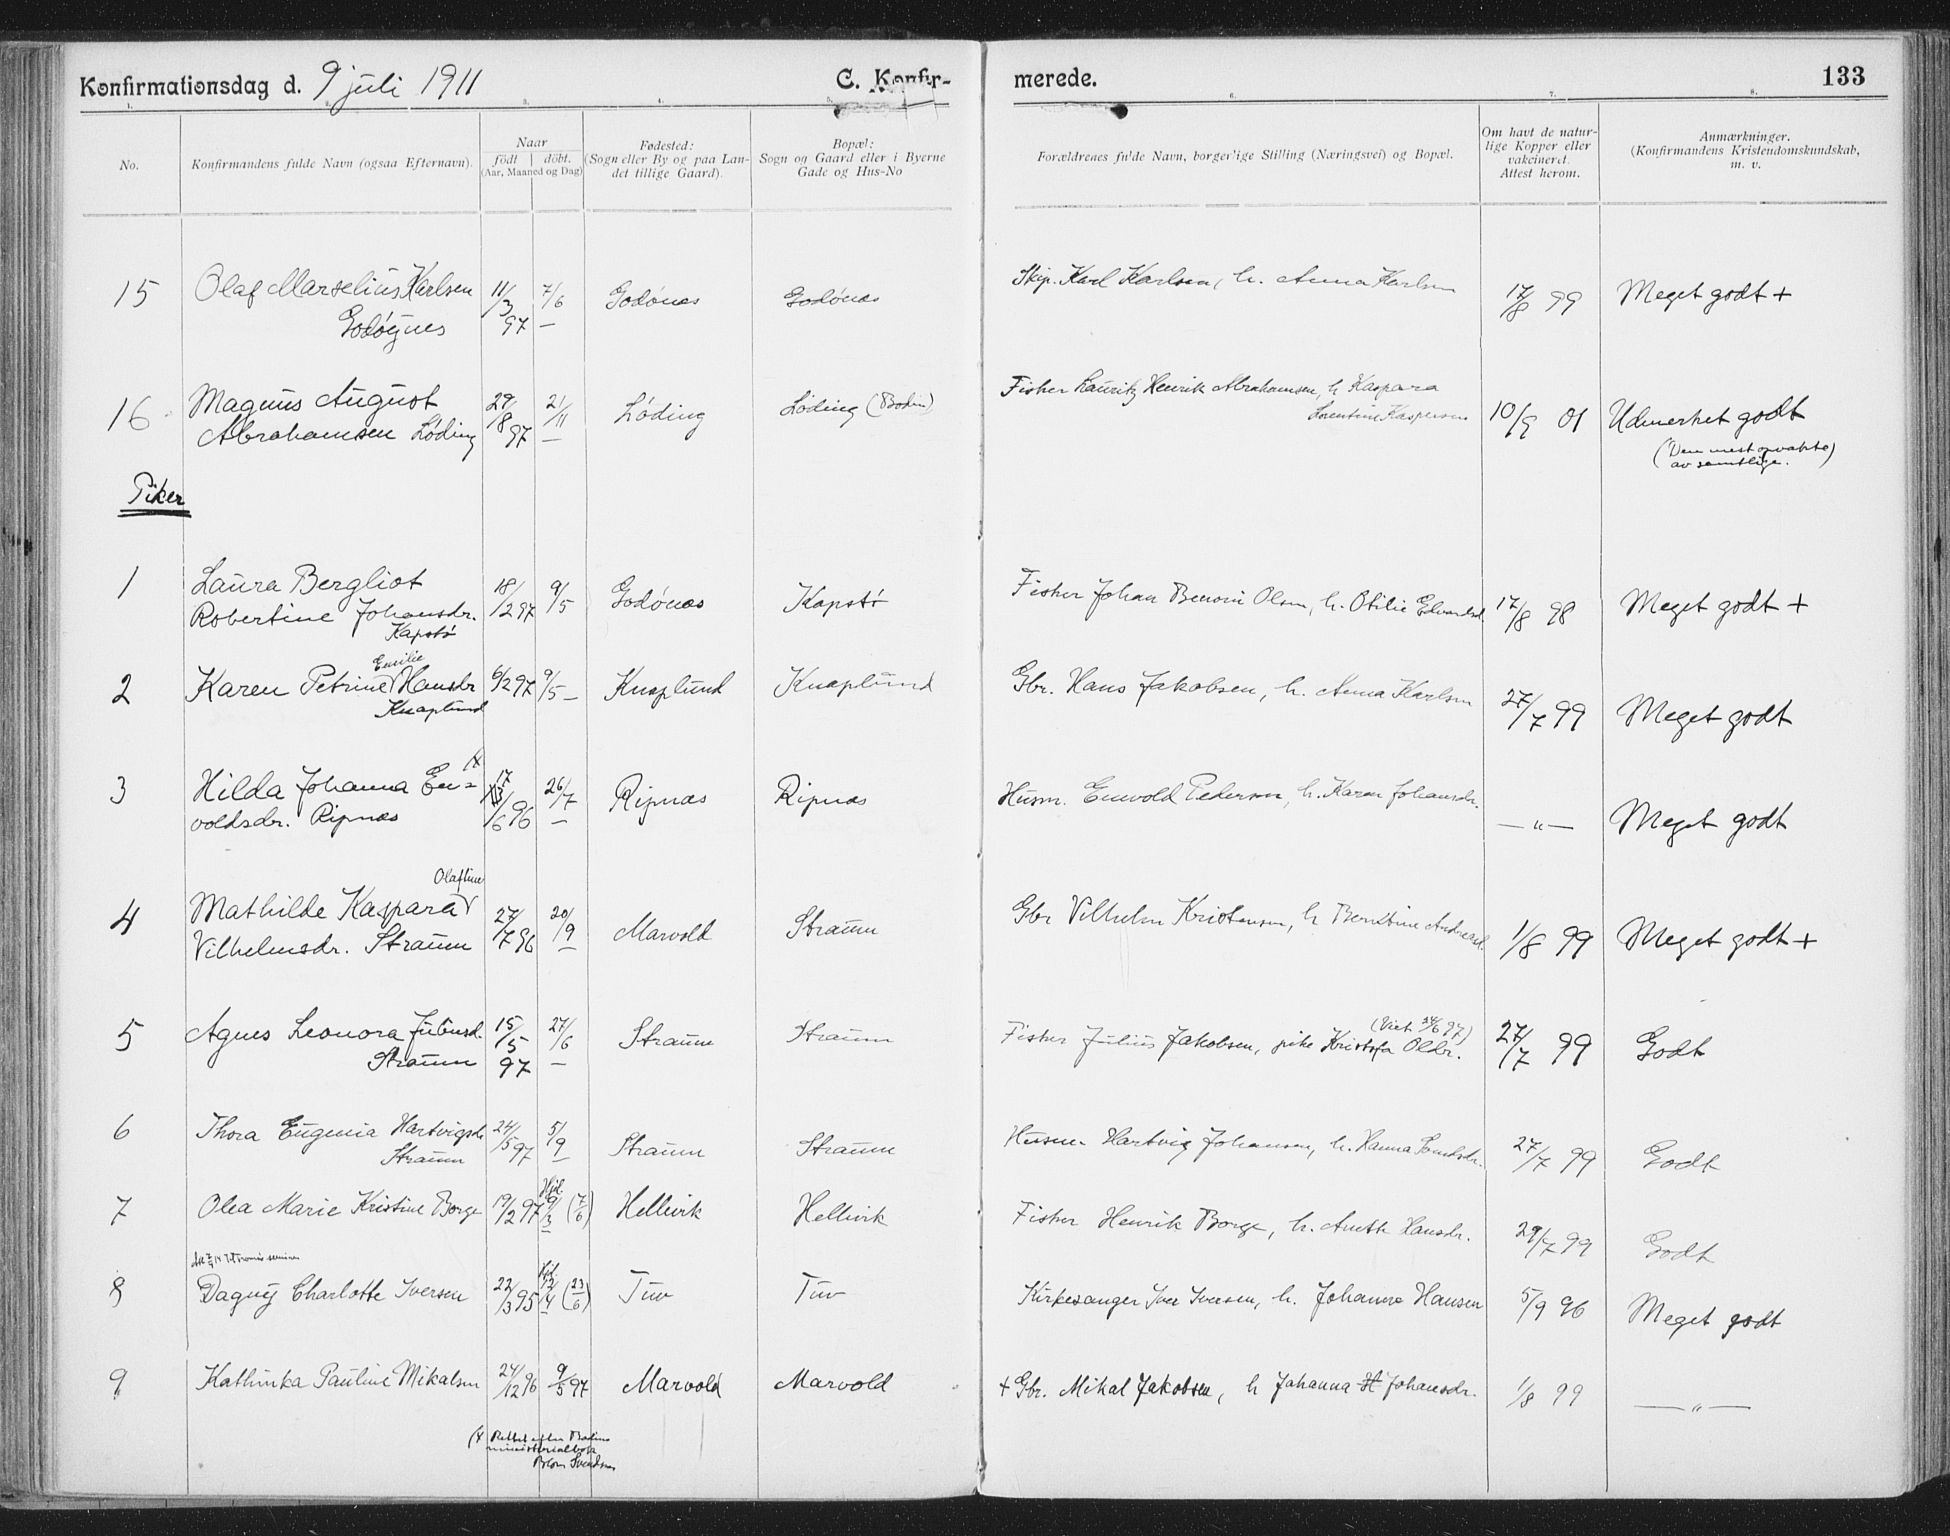 Konfirmationsdag d. 9 juli 1911 C. Konfir-
merede. 133
1. 3. 4. 5. 6. 7. 8.
No.
Konfirmandens fulde Navn (ogsaa Efternavn).
Naar
født | döbt.
(Aar, Maaned og Dag)
Fødested:
(Sogn eller By og paa Lan-
det tillige Gaard).
Bopæl:
Sogn og Gaard eller i Byerne
Gade og Hus-No
Forældrenes fulde Navn, borgerlige Stilling (Næringsvei) og Bopæl.
Om havt de natur-
lige Kopper eller
vakcineret.
Attest herom.
Anmærkninger.
(Konfirmandens Kristendomskundskab,
m. v.
15 Olaf Marselius Karlsen 11/3 7/6 Godönes Godönes Skip. Karl Karlsen, h. Anna Karlsen 17/8 99 Meget godt +
Godöynes 97 —
16 Magnus August 29/8 21/11 Löding Löding (Bodin) Fisker Lauritz Henrik Abrahamsen, h. Kaspara
Abrahamsen Löding 97 — Lorentine Kaspersen 10/9 01 Udmerket godt
(Den mest opvakte)
av samtlige.
Piker
1 Laura Bergliot 18/2 97 9/5 Godönes Kapstö Fisker Johan Benoni Olsen, h. Otilie Edvardsd. 17/8 98 Meget godt +
Robertine Johansdr.
Kapstö
Emilie
2 Karen Petrine Hansdr 6/2 97 9/5 — Knaplund Knaplund Gbr. Hans Jakobsen, h. Anna Karlsen 27/7 99 Meget godt
Knaplund
3 Hilda Johanna En= 17/6 96 26/7 Ripnes Ripnes Husm. Envold Pedersen, h. Karen Johansdr. — „ — Meget godt
voldsdr. Ripnes —
Olaftine
4 Mathilde Kaspara 27/7 96 20/9 Marvold Straum Gbr Vilhelm Kristensen, h Berntine Andreasd. 1/8 99 Meget godt +
Vilhelmsdr. Straum —
5 Agnes Leonora Juliusd. 15/5 27/6 Straum Straum Fisker Julius Jakobsen, pike Kristofa Olsdr. 27/7 99 Godt
Straum 97 —
6 Thora Eugenia Hartvigsdr 24/5 97 5/9 Straum Straum Husm. Hartvig Johansen, h. Hanna 27/7 99 Godt
Straum —
7 Olea Marie Kristine Borge 19/2 97 Hjd. 9/3 (7/6) Hellivik Hellivik Fisker Henrik Borge, h. Aneth Hansdr. 29/7 99 Godt
8 Dagny Charlotte Iversen 22/3 95 Hjd. 12/4 (23/6) Tuv Tuv Kirkesanger Iver Iversen, h. Johanne Hansen 5/9 96 Meget godt
9 Kathinka Pauline Mikalsen 24/12 96 9/5 97 Marvold Marvold + Gbr. Mikal Jakobsen, h Johanna H Johansdr. 1/8 99 — „ —
(X Rettet efter Bodins
ministerialbok